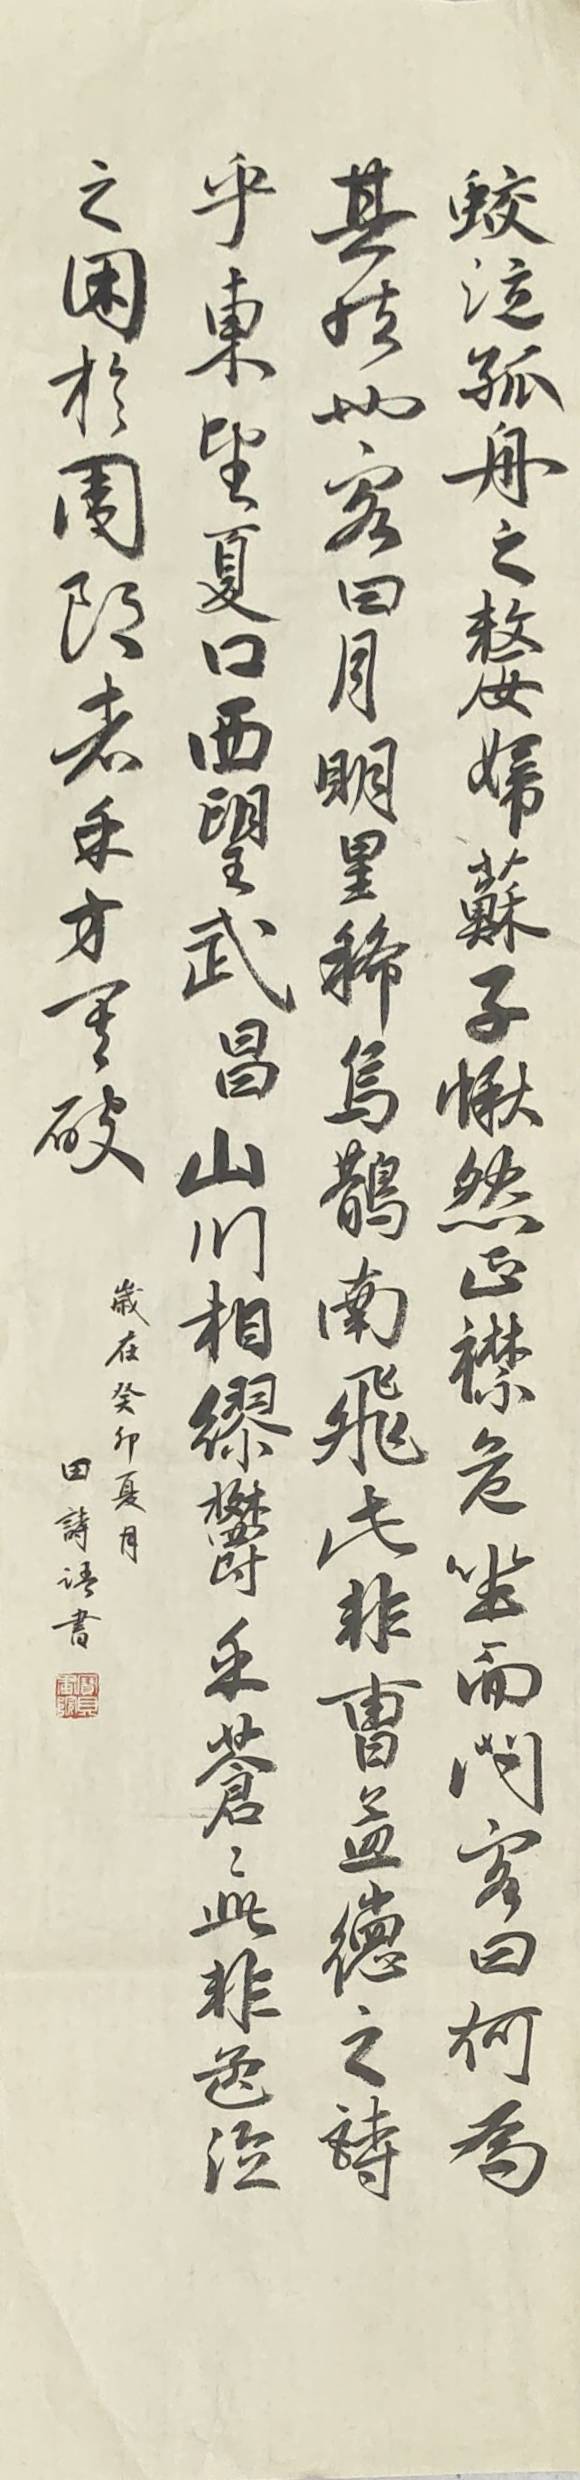 蛟泣孤舟之嫠婦蘇子愀然正襟危坐而問客曰何為
其然也客曰月明星稀烏鵲南飛此非曹孟德之詩
乎東望夏口西望武昌山川相繆鬱乎蒼〻此非孟德
之困於周郎者乎方其破
歲在癸卯夏月
田詩語書